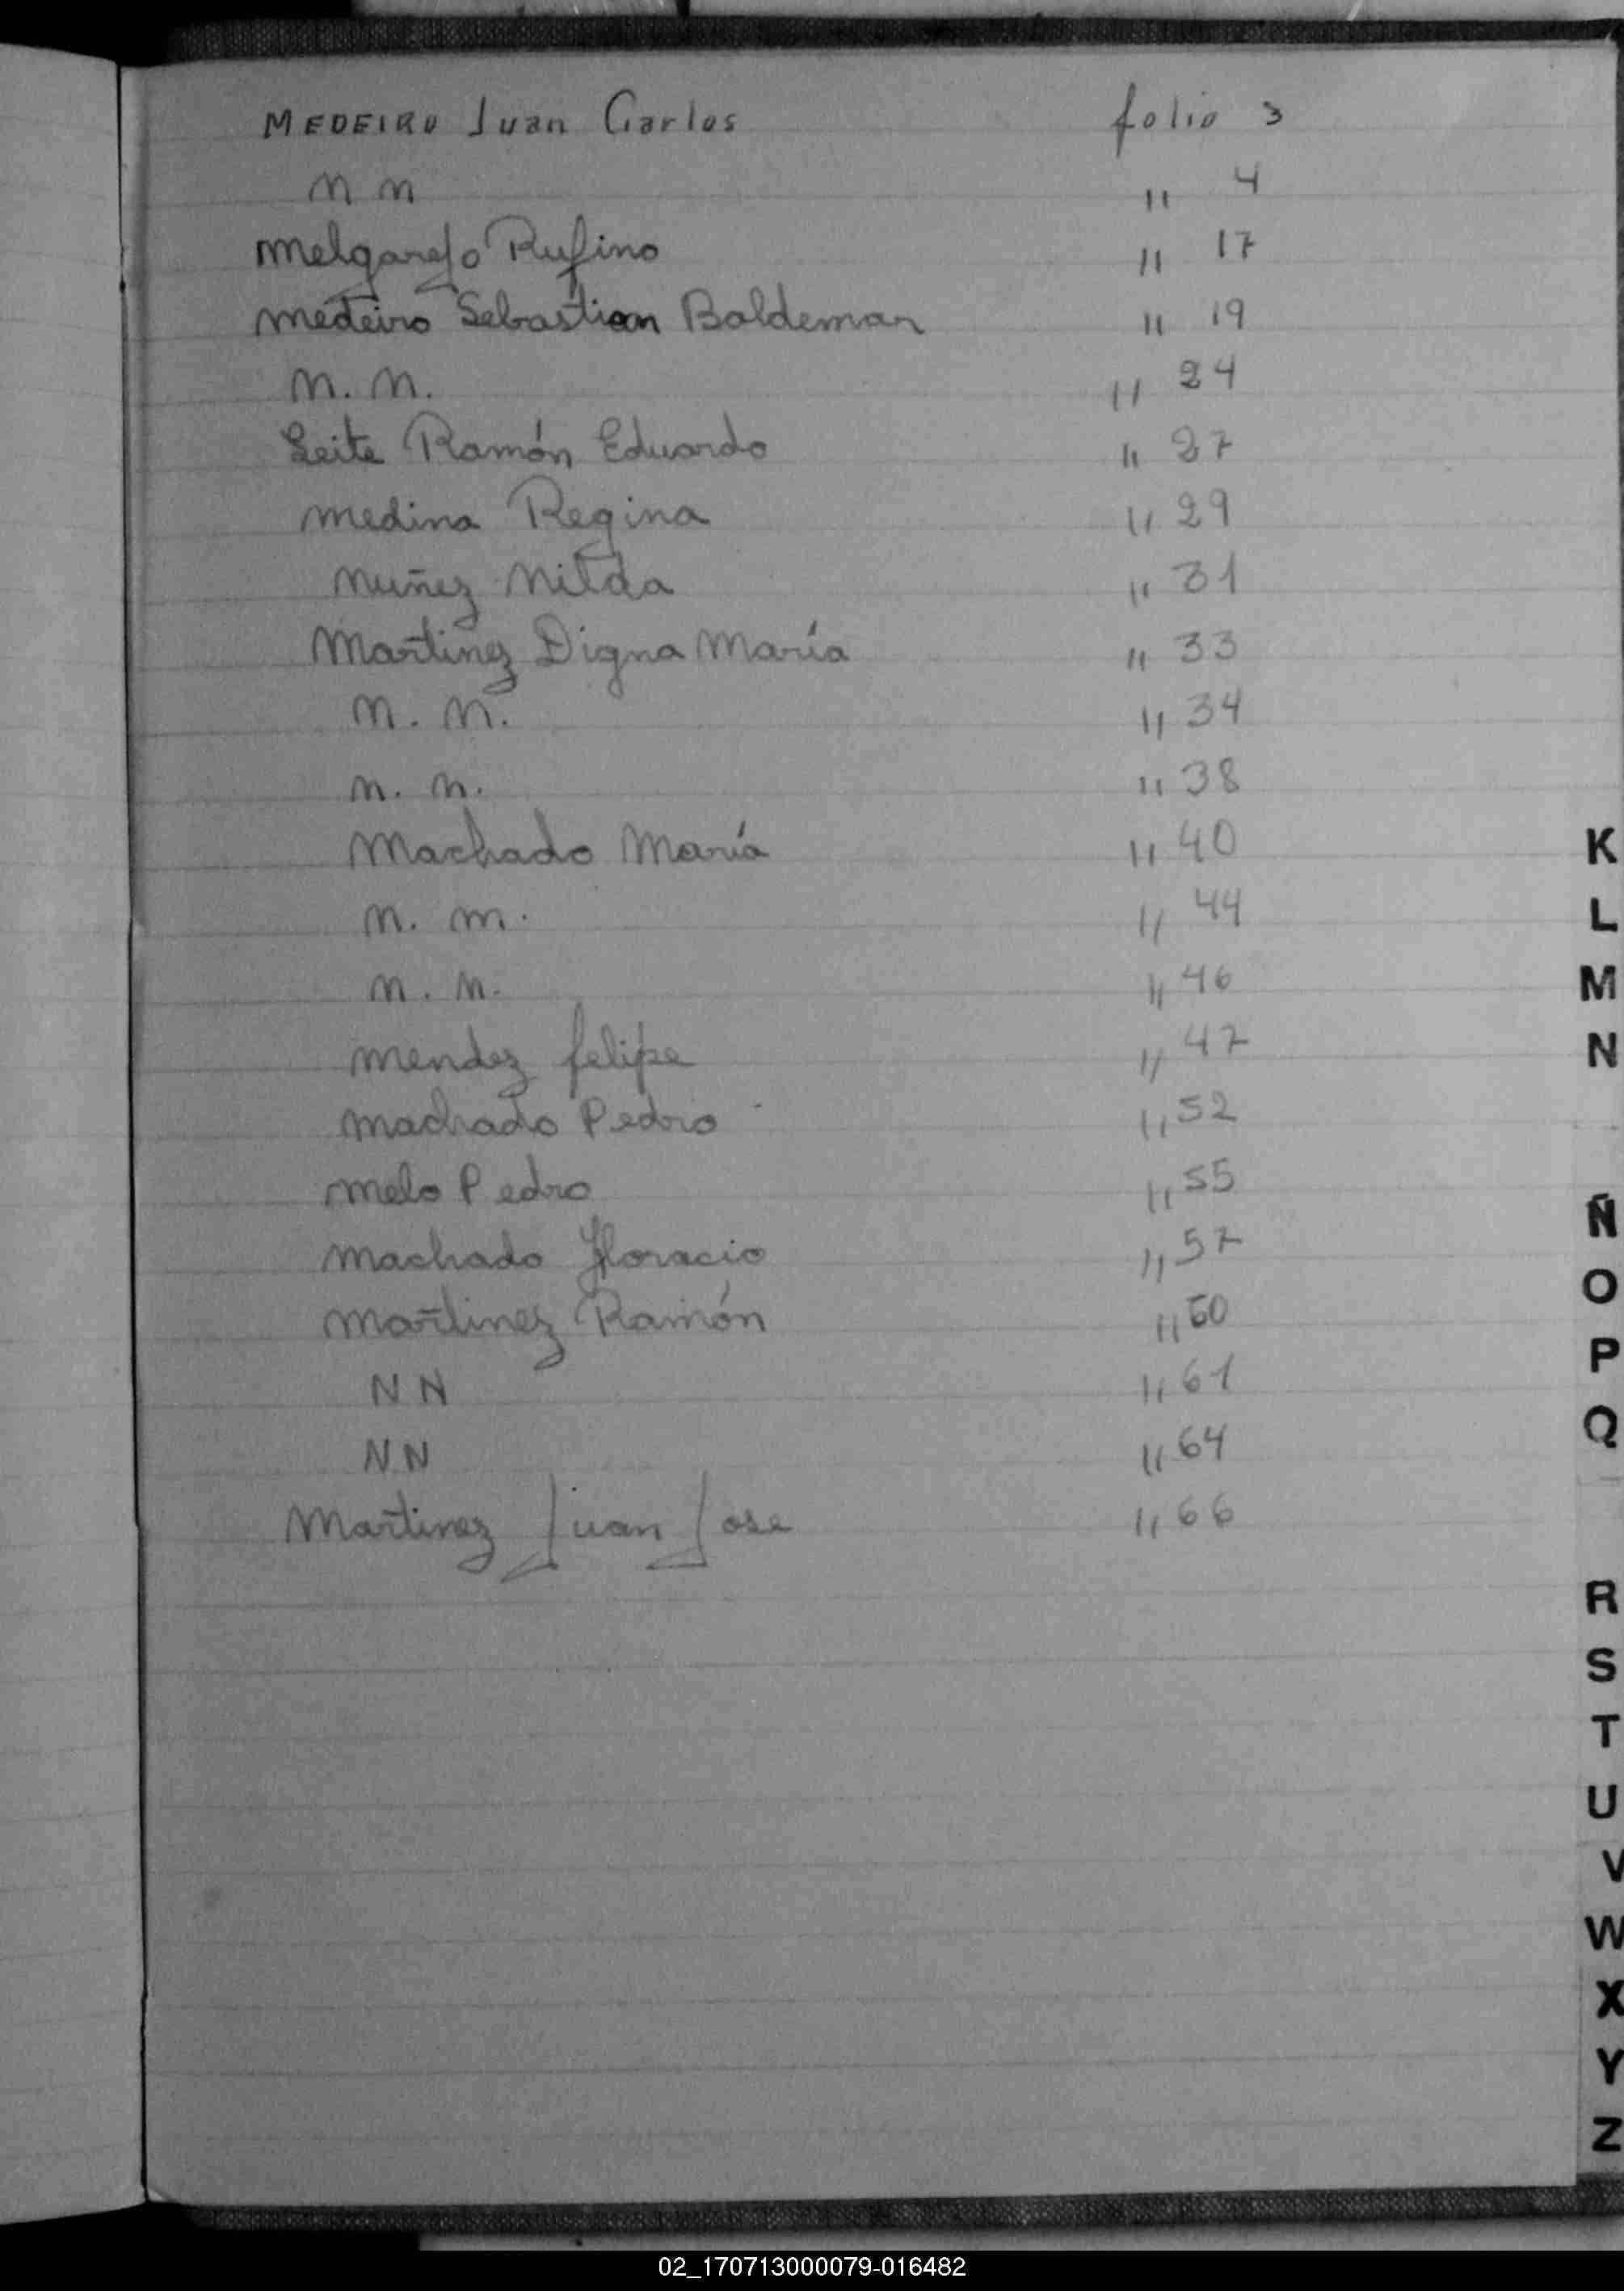 MEDEIRO Juan Carlos folio 3
N N " 4
Melgarejo Rufino " 17
Medeiro Sebastian Baldemar " 19
N. N. " 24
Leite Ramón Eduardo " 27
Medina Regina " 29
Nuñez Nilda " 31
Martinez Digna María " 33
N. N. " 34
N. N. " 38
Machado María " 40
N. N. " 44
N. N. " 46
Mendez felipe " 47
Machado Pedro " 52
Melo Pedro " 55
Machado Horacio " 57
Martinez Ramón " 60
N N " 61
N N " 64
Martinez Juan Jose " 66
K
L
M
N
Ñ
O
P
Q
R
S
T
U
V
W
X
Y
Z
02_170713000079-016482